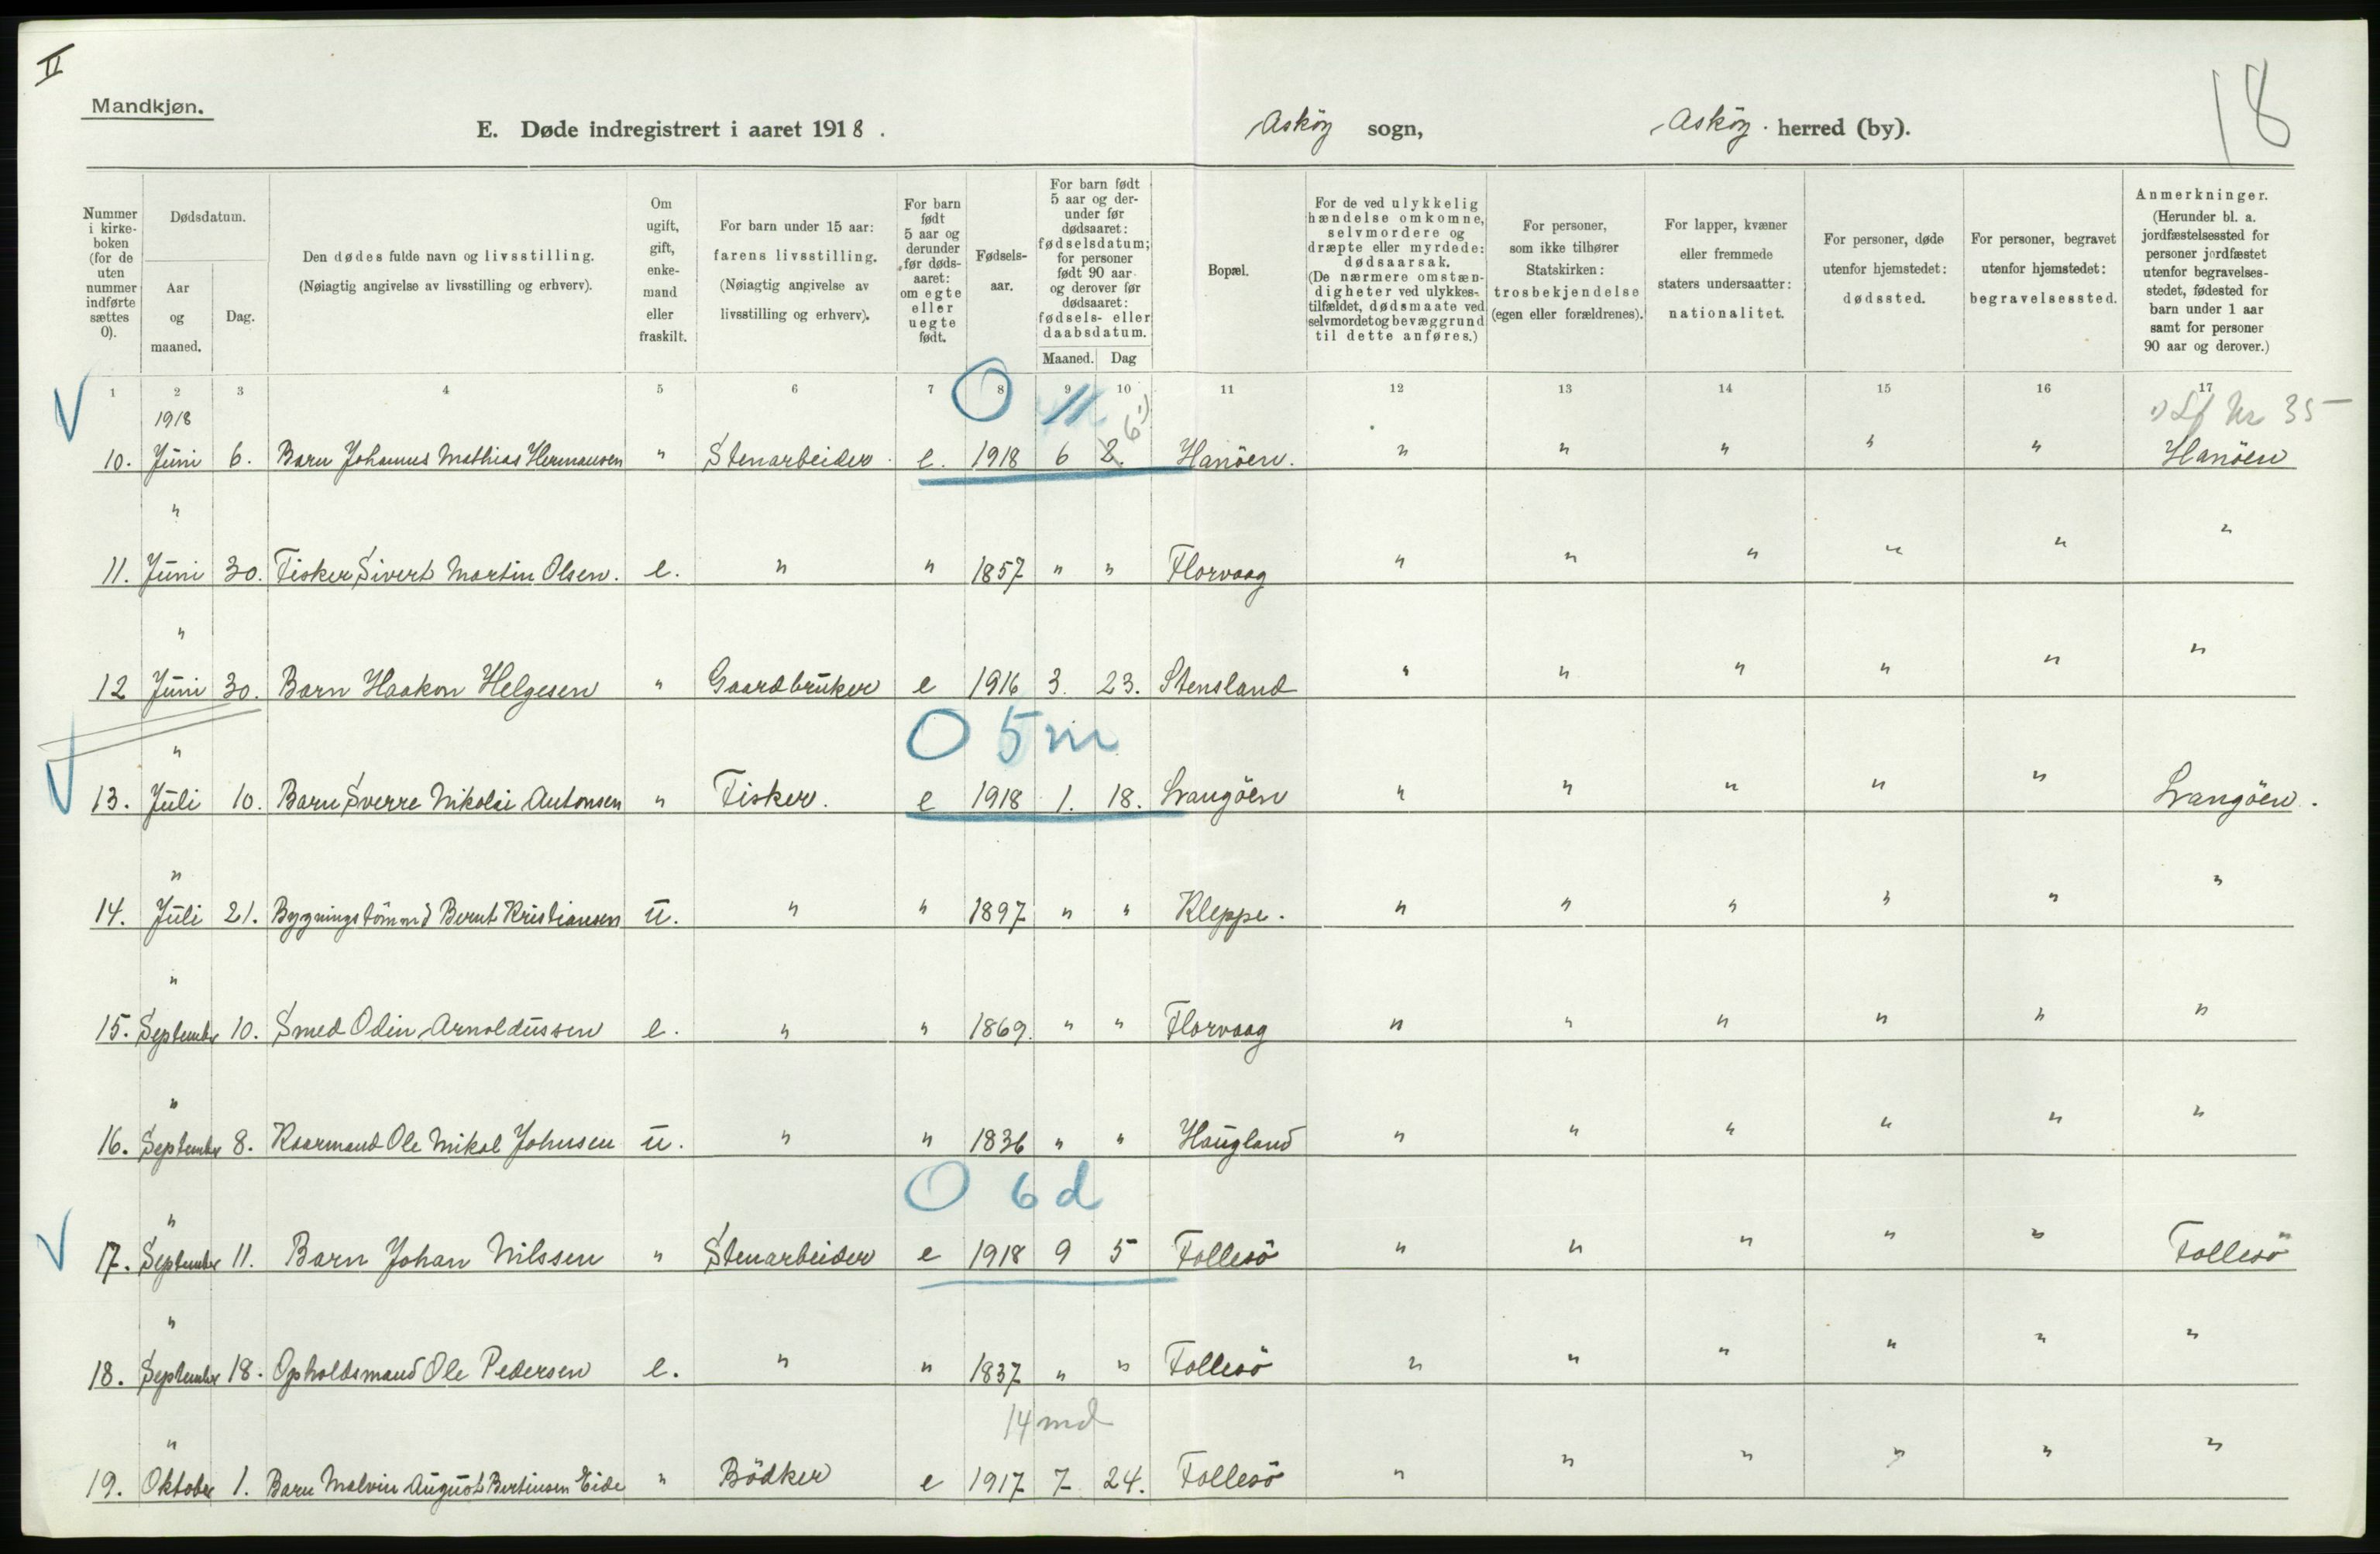 II
Mandkjøn.
E. Døde indregistrert i aaret 1918. Asköy sogn, Asköy. herred (by).
18
Nummer i kirke-boken (for de uten nummer indførte sættes 0).
Dødsdatum.
Aar og maaned.
Dag.
Den dødes fulde navn og livsstilling.
(Nøiagtig angivelse av livsstilling og erhverv).
Om ugift, gift, enke-mand eller fraskilt.
For barn under 15 aar: farens livsstilling.
(Nøiagtig angivelse av livsstilling og erhverv).
For barn født 5 aar og derunder før døds-aaret: om egte eller uegte født.
Fødsels-aar.
For barn født 5 aar og der-under før dødsaaret: fødselsdatum; for personer født 90 aar og derover før dødsaaret: fødsels- eller daabsdatum.
Maaned. Dag
Bopæl.
For de ved ulykkelig hændelse omkomne, selvmordere og dræpte eller myrdede: dødsaarsak.
(De nærmere omstæn-digheter ved ulykkes-tilfældet, dødsmaate ved selvmordet og bevæggrund til dette anføres.)
For personer, som ikke tilhører Statskirken: trosbekjendelse (egen eller forældrenes).
For lapper, kvæner eller fremmede staters undersaatter: nationalitet.
For personer, døde utenfor hjemstedet: dødssted.
For personer, begravet utenfor hjemstedet: begravelsessted.
Anmerkninger.
(Herunder bl. a. jordfæstelsessted for personer jordfæstet utenfor begravelses-stedet, fødested for barn under 1 aar samt for personer 90 aar og derover.)
1 2 3 4 5 6 7 8 9 10 11 12 13 14 15 16 17
1918 0 6 1) 1) Lf Nr 35
10. Juni 6. Barn Johannes Mathias Hermansen " Stenarbeider. e. 1918 6 2. Hanöen. " " " " " Hanöen
"
11. Juni 30. Fisker Sivert Martin Olsen. e. " " 1857 " " Florvaag " " " " " "
"
12 Juni 30. Barn Haakon Helgesen " Gaardbruker e 1916 3. 23. Stensland " " " " " "
0 5 m
"
13. Juli 10. Barn Sverre Nikolai Antonsen " Fisker. e 1918 1. 18. Vrangöen " " " " " Vrangöen.
"
14. Juli 21. Bygningstömmd Bernt Kristiansen u. " " 1897 " " Kleppe. " " " " " "
"
15. September 10. Smed Odin Arnoldussen e. " " 1869. " " Florvaag " " " " " "
"
16. September 8. Kaarmand Ole Mikal Johnsen u. " " 1836 " " Haugland " " " " " "
0 6 d
"
17. September 11. Barn Johan Nilssen " Stenarbeider e 1918 9 5 Follesö " " " " " Follesö
"
18. September 18. Opholdsmand Ole Pedersen e. " " 1837 " " Follesö " " " " " "
14 md
"
19. Oktober 1. Barn Malvin August Bertinsen Eide " Bödker e 1917 7 24. Follesö " " " " " "